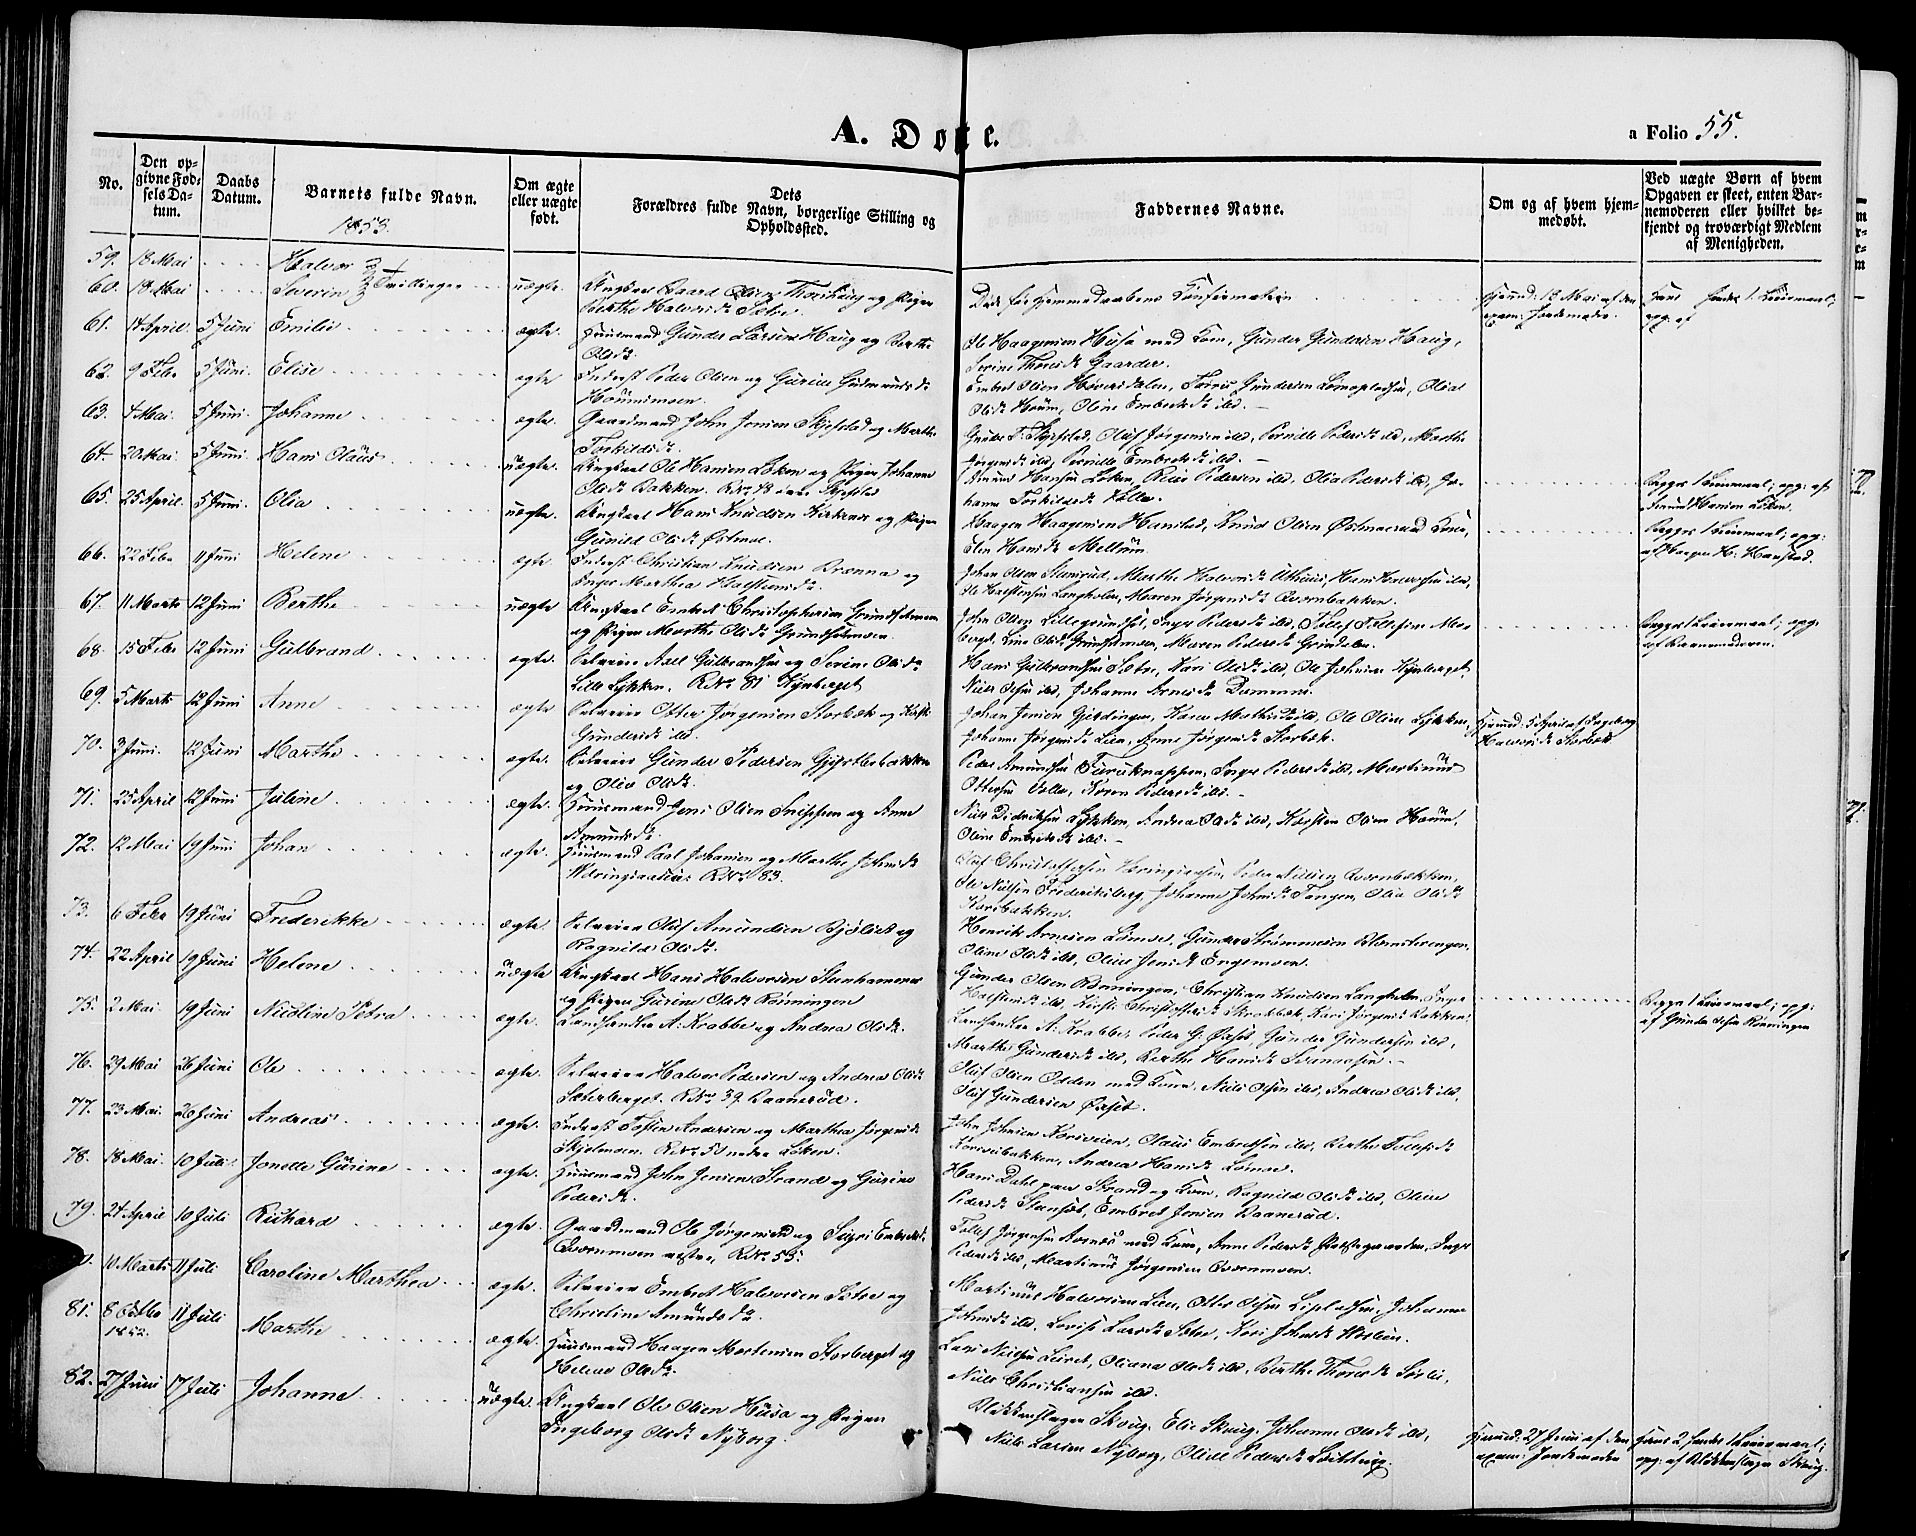 A. Døte.
a Folio 55.
No.
Den op-
givne Fød-
sels Da-
tum.
Daabs
Datum.
Barnets fulde Navn.
1853.
Om ægte
eller uægte
født.
Dets
Forældres fulde Navn, borgerlige Stilling og
Opholdssted.
Faddernes Navne.
Om og af hvem hjem-
medøbt.
Ved uægte Børn af hvem
Opgaven er skeet, enten Bar-
nemoderen eller hvilket be-
kjendt og troværdigt Medlem
af Menigheden.
59. 18 Mai Halvor
60. 18 Mai Severin Tvillinger uægte. Ungkarl Baard Olsen og Pigen
Berthe Halvorsd. Sætre.
Død før Hjemmedaabens Confirmation
18 Mai af den
exam: Jordemoder.
61. 14 April 5 Juni Emilie ægte. Huusmand Gunder Larsen Haug og Berthe
Olsd.
Ole Haagensen Husa med Kone, Gunder Gundersen Haug,
Serine Thoresd. Gaarder.
62. 9 Febr 5 Juni Elise ægte Inderst Peder Olsen og Gurine Gudmundsd.
Embret Olsen Hoversdalen, Gundersen, Olia
Olsd. Houm, Oline Embretsd. ibid.
63. 4 Mai. 5 Juni. Johanne ægte. Gaardmand John Jensen Skjefstad og Marthe
Torkildsd.
Gunder T. Skjefstad, Oluf Jørgensen ibid, Pernille Pedersd. ibid, Marthe
Jørgensd. ibid, Pernille Embretsd. ibid.
64. 20 Mai. 5 Juni. Hans Olaus uægte. Ungkarl Ole Hansen Løken og Pigen Johanne
Olsd. Bakken. R.No. 48 Skjefstad
Amund Hansen Løken, Peder Pedersen ibid, Olia Pedersd. ibid, Jo-
hanne Torkildsd. Holla.
Begges 1 Leiermaal; opg: af
Amund Hansen Løken.
65. 25 April. 5 Juni. Olia uægte. Ungkarl Hans Knudsen Kirknes og Pigen
Gunild Olsd. Østmoe.
Haagen Haagensen Hanstad, Knud Olsen Østmoe med Kone,
Elen Hansd. Mellum.
Begges 1 Leiermaal; opg:
af Haagen H. Hanstad.
66. 22 Febr 11 Juni Helene ægte Inderst Christian Knudsen Brænna og
Inger Marthea Halstensd.
Johan Olsen, Marthe Halvorsd. Uthuus, Hans Halvorsen ibid,
Ole Halstensen Langholen, Maren Jørgensd. Qvernbakken.
67. 11 Marts 12 Juni Berthe uægte Ungkarl Embret Christophersen Grundsætmoen
og Pigen Marthe Olsd. Grundsætmoen.
John Olsen Lillegrundset, Inger Pedersd. ibid, Tollef Tollefsen Mo-
berget, Line Olsd. Grundsætmoen, Maren Pedersd. Grindalen.
Begges 1 Leiermaal; opg:
af Barnemoderen.
68. 15 Febr 12 Juni Gulbrand ægte. Selveier Axel Gulbrandsen og Serine Olsd.
Lille Løkken. R.No. 81 Kynberget
Hans Gulbrandsen Sætre, Kari Olsd. ibid, Ole Johnsen Kynberget,
Niels Olsen ibid, Johanne Arnesd. Dammen.
69. 5 Marts 12 Juni Anne ægte Selveier Otter Jørgensen Storbæk og Kirsti
Gundersd. ibid.
Johan Jensen Gjerdingen, Karen Mathisd. ibid, Ole Olsen Løkken,
Johanne Jørgensd. Lien, Anne Jørgensd. Storbæk.
Hjemmed: 5 April af Ingeborg
Halvorsd. Storbæk.
70. 3 Juni. 12 Juni Marthe ægte. Selveier Gunder Pedersen Gjestlerbakken
og Olea Olsd.
Peder Amundsen Furuknappen, Inger Pedersd. ibid, Martinus
Ottersen, Karen Pedersd. ibid.
71. 25 April 12 Juni Juline ægte Huusmand Jens Olsen Snippen og Anne
Amundsd.
Niels Didriksen Løkken, Andrea Olsd. ibid, Karsten Olsen Houm,
Oline Embretsd. ibid.
72. 12 Mai 19 Juni Johan ægte. Huusmand Paal Johansen og Marthe Johnsd.
R.No. 83.
Oluf Christoffersen, Peder Nilsen Qvernbakken,
Ole Nilsen Frederiksberg, Johanne Johnsd. Tangen, Olia Olsd.
73. 6 Febr 19 Juni Frederikke ægte. Selveier Oluf Amundsen Bjølset og
Ragnild Olsd.
Henrik Arnesen Lømoe, Gunder Strømmesen Blæsterengen,
Oline Olsd. ibid, Oline Jensd. Engemoen.
74. 22 April 19 Juni Helene uægte Ungkarl Hans Halvorsen Steenhammer
og Pigen Gurine Olsd. Rønningen
Gunder Olsen Rønningen, Christian Knudsen Langholen, Inger
Halstensd. ibid, Kirsti Christoffersd. Skrabbæk, Kari Jørgensd. Bakken.
Begges 1 Leiermaal; opg:
af Gunder Olsen Rønningen
75. 2 Mai 19 Juni Nicoline Petra ægte. Landhandler A. Krabbe og Andrea Olsd.
Landhandler A. Krabbe, Peder G. Øxset, Gunder Gundersen ibid,
Marthe Gundersd. ibid, Berthe Hansd. Svenaasen.
76. 29 Mai 26 Juni Ole ægte. Selveier Halvor Pedersen og Andrea Olsd.
Sæterberget. R.No. 39 Baanerud.
Oluf Olsen Odden med Kone, Niels Olsen ibid, Andrea Olsd. ibid,
Oluf Gundersen Øxset.
77. 23 Mai. 26 Juni Andreas ægte. Inderst Tosten Andersen og Marthea Jørgensd.
Skjelmoen. R.No. 5 nedre Løken.
John Johnsen Korsveien, Olaus Embretsen ibid, Berthe Tollefsd.
Korsveibakken, Andrea Hansd. Lømoe.
78. 18 Mai. 10 Juli Jonette Gurine ægte. Huusmand John Jensen Strand og Gurine
Pedersd.
Hans Dahl paa Strand og Kone, Ragnild Olsd. ibid, Oline
Pedersd. Stenset, Embret Jensen Baanerud.
79. 24 April 10 Juli Richard ægte. Gaardmand Ole Jørgensen og Sigri Embretsd.
Qvernmoen østre, R.No. 55.
Tollef Jørgensen Aasnæs med Kone, Anne Pedersd. Præstegaarden, Inger
Pedersd. ibid, Martinus Jørgensen Qvernmoen.
10 Marts 11 Juli Caroline Marthea ægte. Selveier Embret Halvorsen Sætre og
Christine Amundsd.
Martinus Halvorsen Lien, Otter Olsen, Johanne
Johnsd. ibid, Lovise Larsd. Sætre, Kari Johnsd.
81. 8 Octbr 1852. 11 Juli Marthe ægte. Huusmand Haagen Mortensen Storberget og
Helene Olsd.
Lars Nielsen Leiret, Oliana Olsd. ibid, Berthe Thoresd. Sørli,
Niels Christiansen ibid.
82. 27 Juni 17 Juli Johanne uægte. Ungkarl Ole Olsen Husa og Pigen
Ingeborg Olsd. Nyborg.
Blikkenslager Skoug, Elie Skoug, Johanne Olsd. ibid,
Niels Larsen Nyborg, Oline Pedersd.
Hjemmed: 27 Juni af den
exam: Jordemoder
Hans 2, hendes 1 Leiermaal;
opg: af Blikkenslager Skoug.